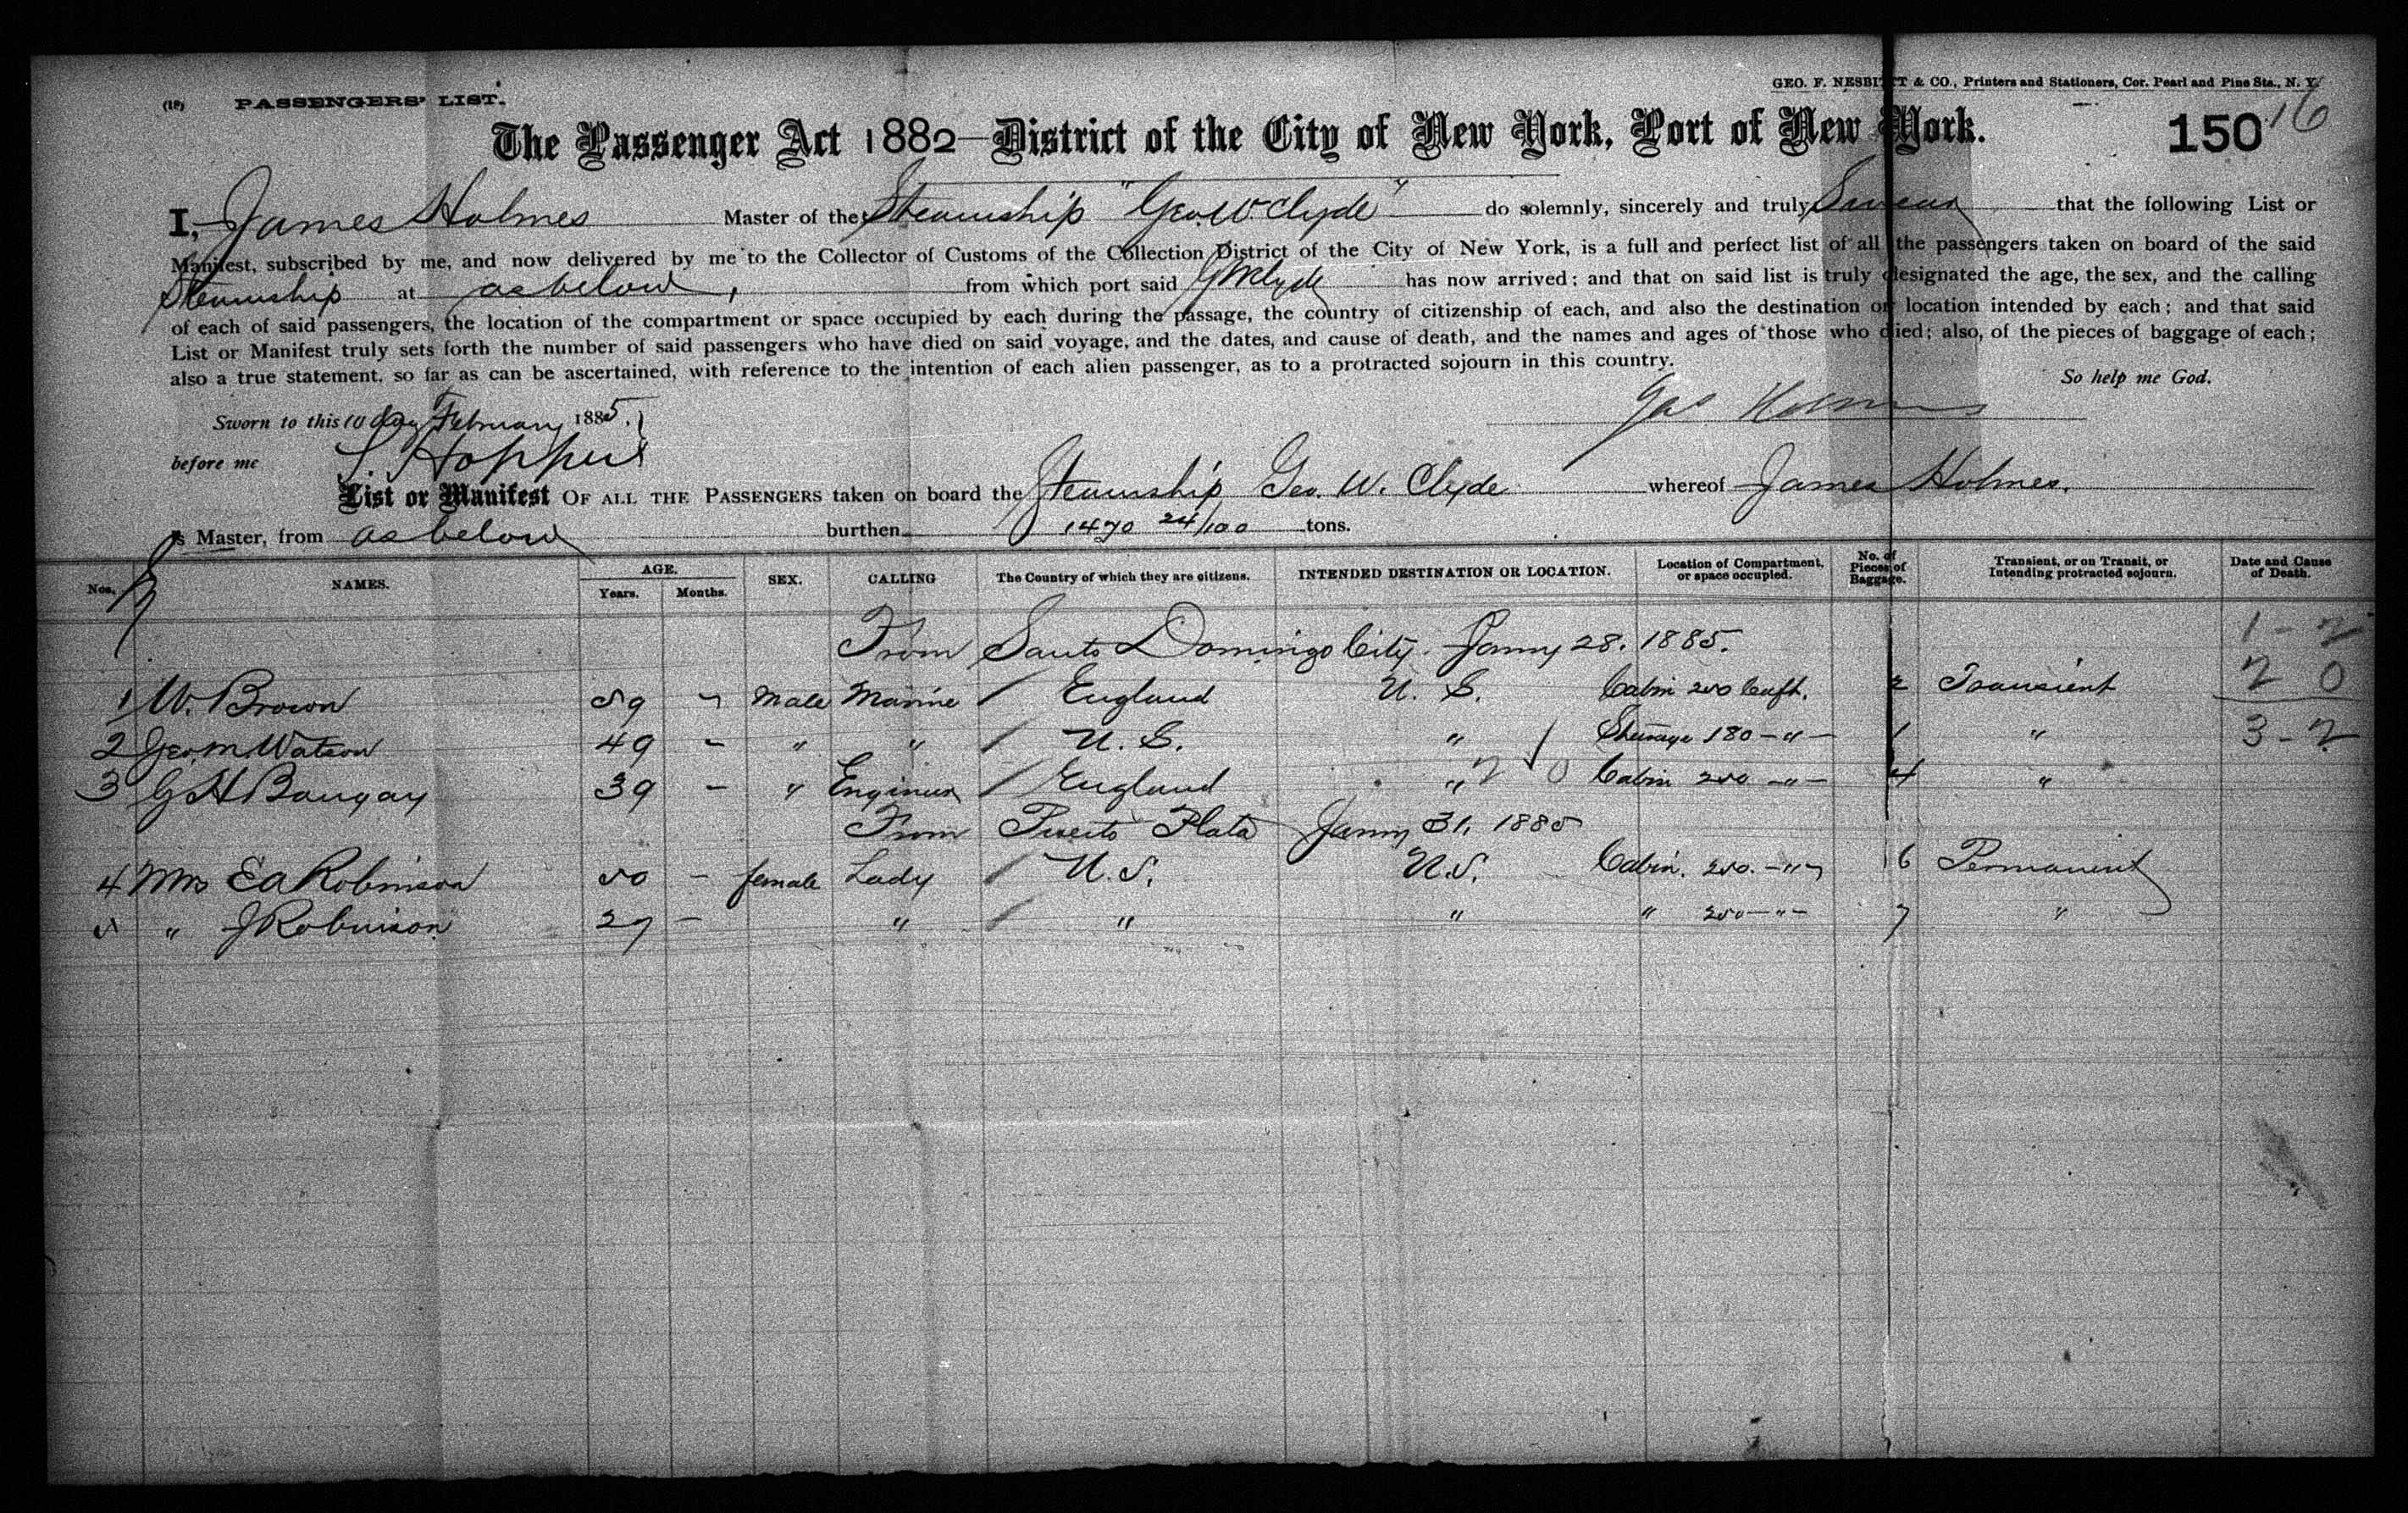 GEO. F. NESBITT & CO., Printers and Stationers, Cor. Pearl and Pine Sts., N. Y.
(18) PASSENGERS' LIST.
The Passenger Act 1882—District of the City of New York, Port of New York. 150 16
I, James Holmes Master of the Steamship "Geo W Clyde" do solemnly, sincerely and truly Swear that the following List or
Manifest, subscribed by me, and now delivered by me to the Collector of Customs of the Collection District of the City of New York, is a full and perfect list of all the passengers taken on board of the said
Steamship at as below, from which port said GW Clyde has now arrived; and that on said list is truly designated the age, the sex, and the calling
of each of said passengers, the location of the compartment or space occupied by each during the passage, the country of citizenship of each, and also the destination or location intended by each; and that said
List or Manifest truly sets forth the number of said passengers who have died on said voyage, and the dates, and cause of death, and the names and ages of those who died; also, of the pieces of baggage of each;
also a true statement, so far as can be ascertained, with reference to the intention of each alien passenger, as to a protracted sojourn in this country.
So help me God.
Sworn to this 10 day February 1885. Jas Holmes
before me
List or Manifest OF ALL THE PASSENGERS taken on board the Steamship Geo. W. Clyde whereof James Holmes.
is Master, from as below burthen 1470 24/100 tons.
Nos. NAMES. AGE. Years. Months. SEX. CALLING The Country of which they are citizens. INTENDED DESTINATION OR LOCATION. Location of Compartment, or space occupied. No. of Pieces of Baggage. Transient, or on Transit, or Intending protracted sojourn. Date and Cause of Death.
From Santo Domingo City. Jany 28. 1885. 1 - 2
1 W. Brown 59 " Male Marine / England U. S. Cabin 250 Cuft. 2 Transient 2 0
2 Geo. M. Watson 49 - " " / U. S. " / Steerage 180 - " - 1 " 3 - 2
3 G H Bangay 39 - " Engineer / England " 2 0 Cabin 250 - " - 4 "
From Puerto Plata Jany 31, 1885
4 Mrs E A Robinson 50 - female Lady / U. S. U. S. Cabin. 250. - " - 6 Permanent
5 " J Robinson 27 - " / " " " 250 - " - 7 "